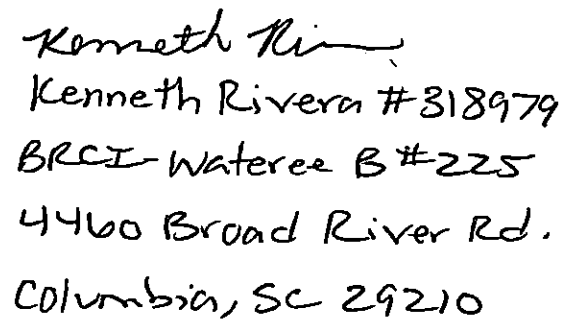 Kenneth Rivera
Kenneth Rivera #318979
BRCI-Wateree B #225
4460 Broad River Rd.
Columbia, SC 29210